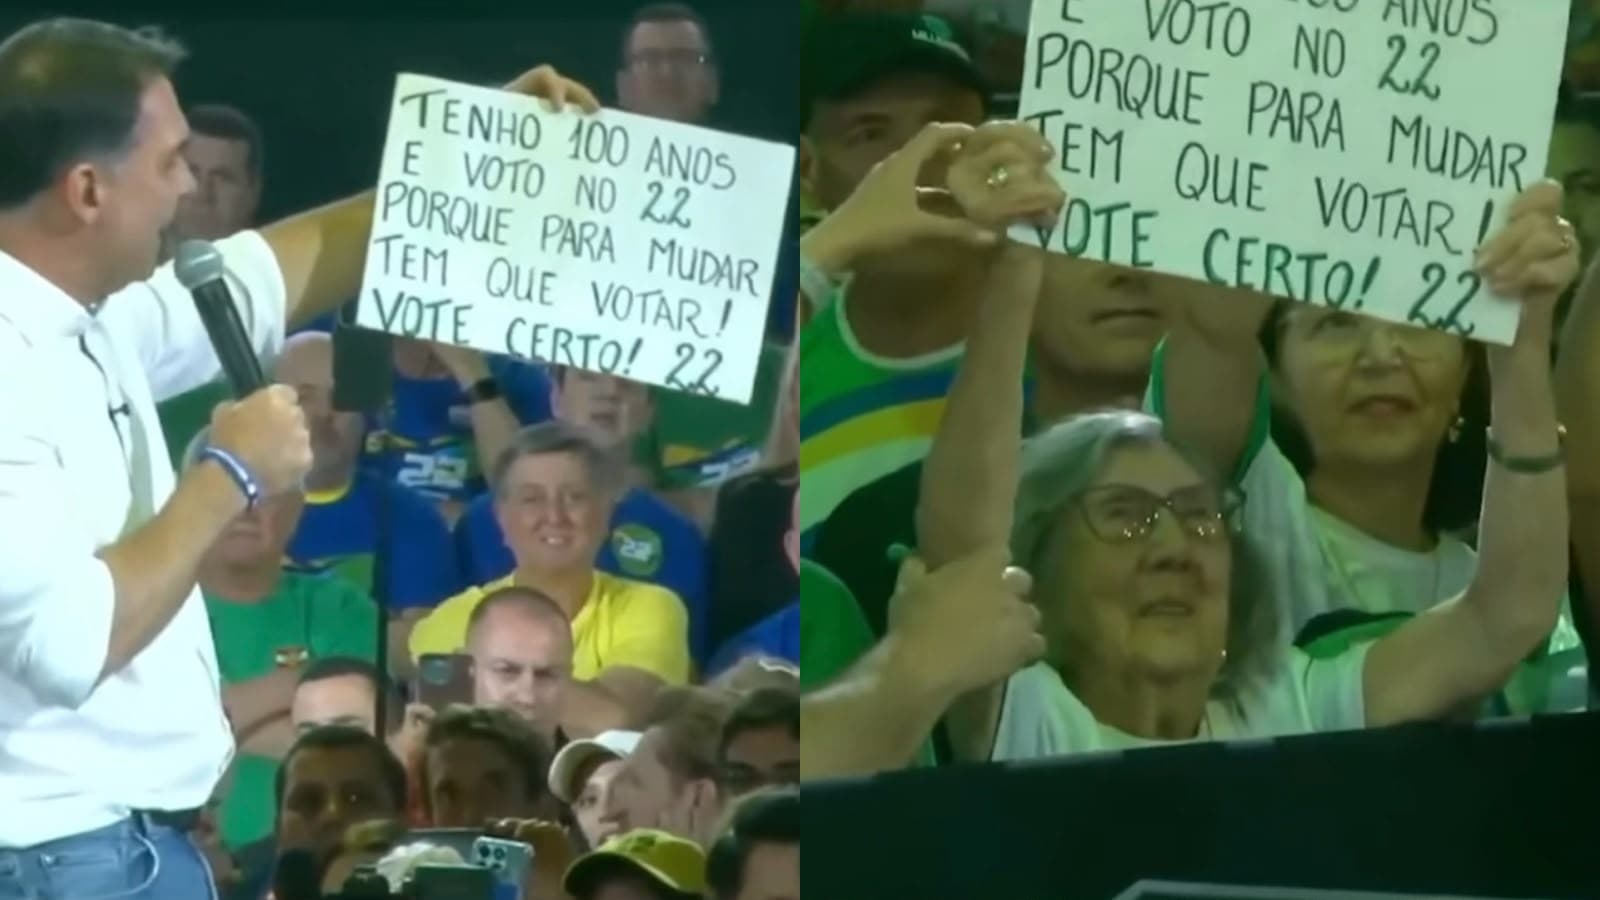 TENHO 100 ANOS
E VOTO NO 22
PORQUE PARA MUDAR
TEM QUE VOTAR!
VOTE CERTO! 22
22
22
22
ANOS
E VOTO NO 22
PORQUE PARA MUDAR
TEM QUE VOTAR!
VOTE CERTO! 22